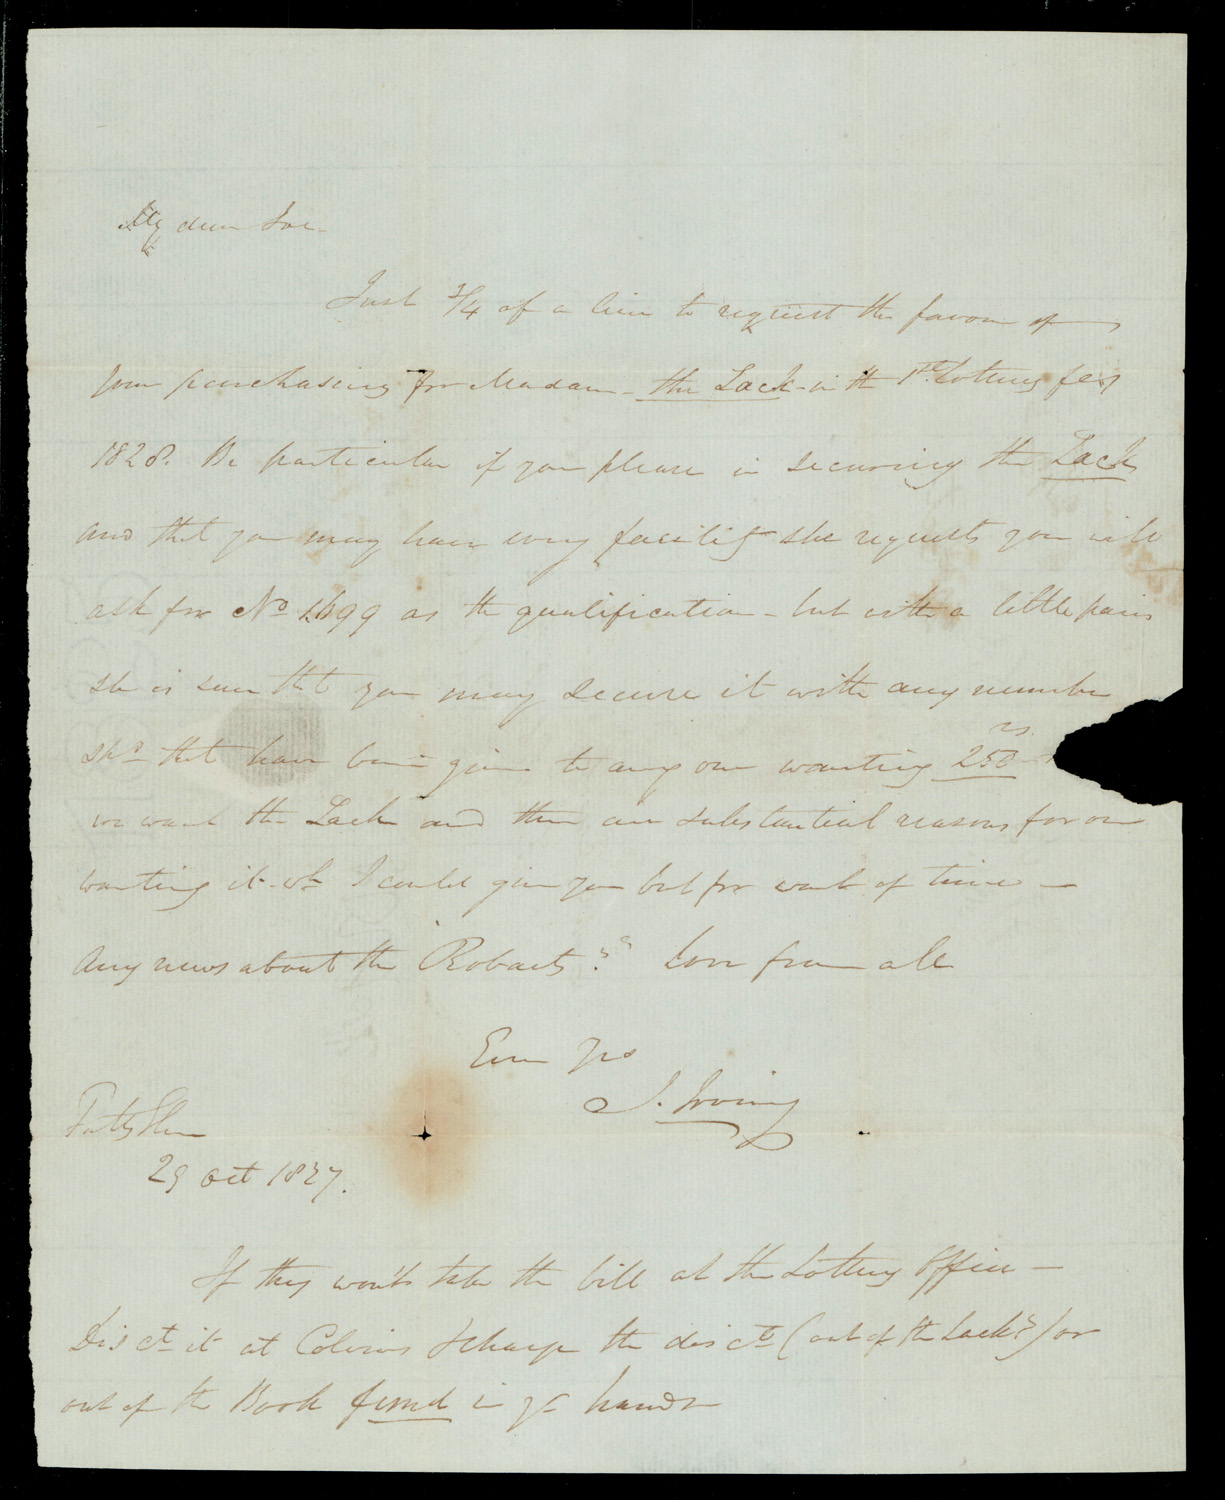 My dear Joe.
Just 3/4 of a line to request the favour of
your purchasing for Madam - the Lack - in the 1st Lottery for
1828. Be particular if you please in securing the Lack
and that you may have every facility she requests you will
ask for No 1699 as the qualification - but with a little pains
she is sure that you may secure it with any number
shd that have been given to any one wanting 250 rs
we want the Lack and there are substantial reasons for our
wanting it - wh I could give you but for want of time -
Any news about the Robarts? Love from all
Ever Yrs
J. Irving
Futty Ghur
29 Oct 1827.
If they wont take the bill at the Lottery Office -
Disct it at Colvins & charge the disct (out of the Lack?) or
out of the Book fund in yr hands